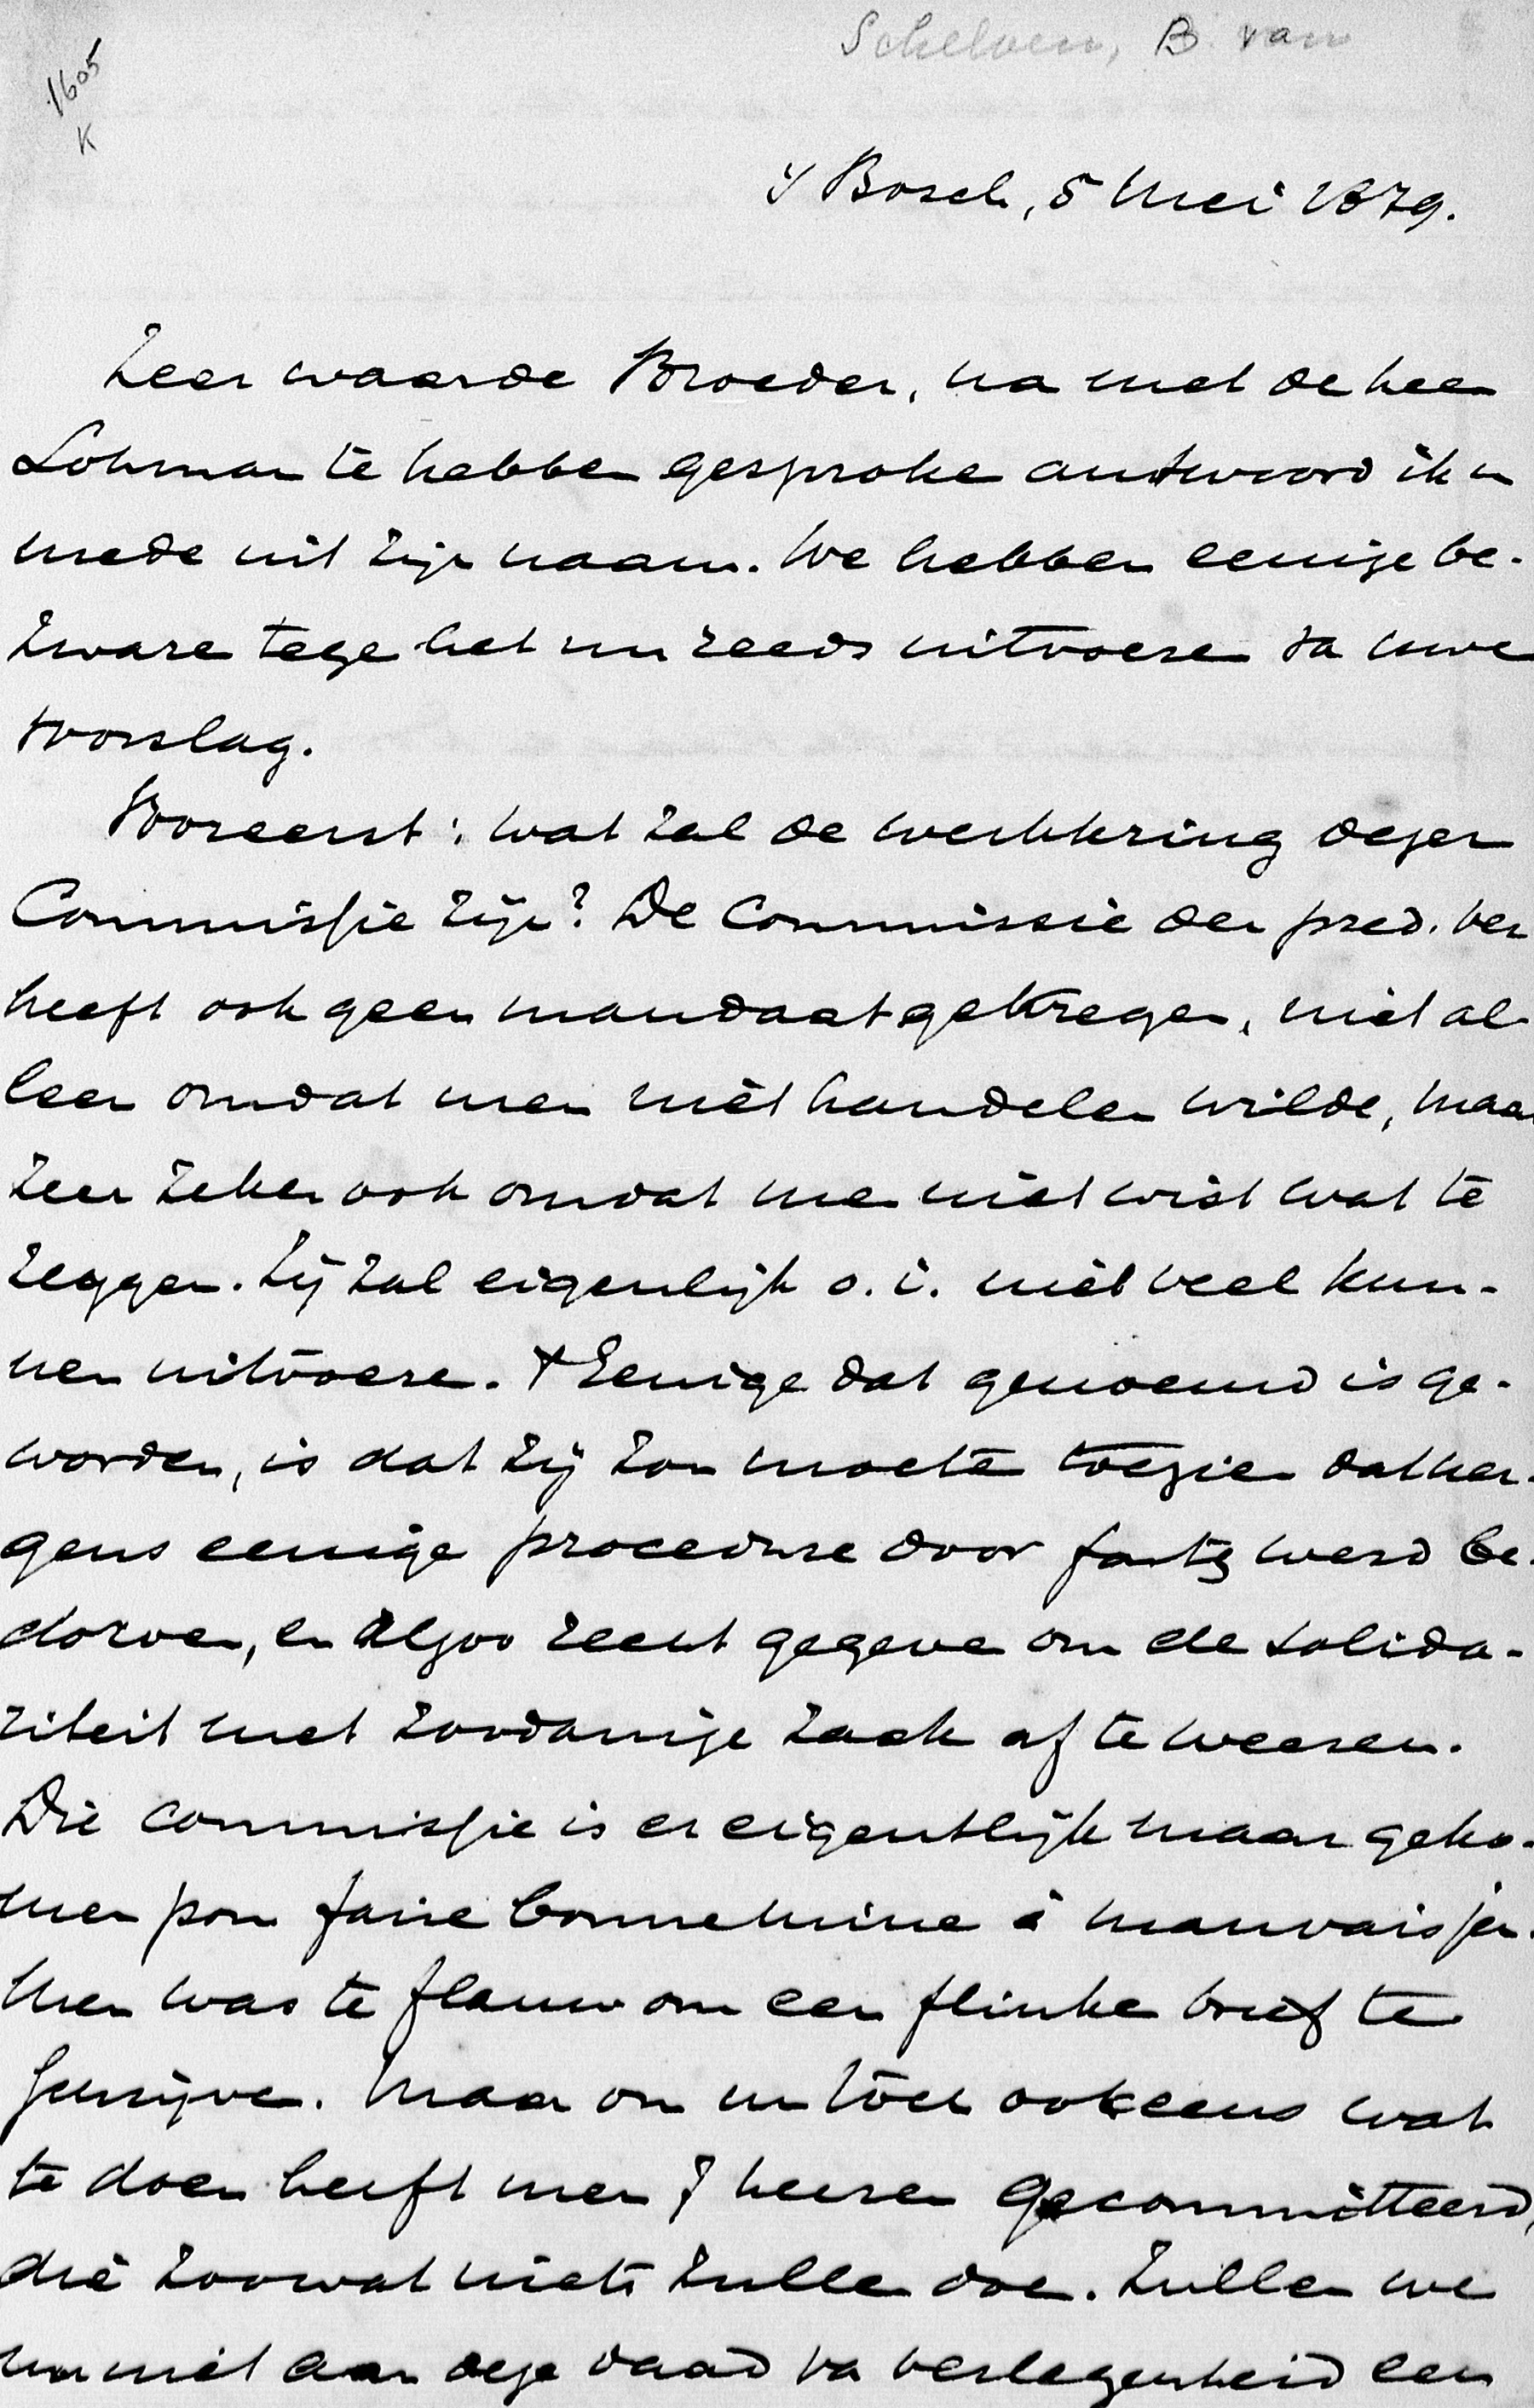 Schelven, B. van
1605
K
's Bosch, 5 Mei 1879.
Zeer waarde Broeder, na met de heer
Lohman te hebben gesproken antwoord ik u
mede uit zijn naam. We hebben eenige be-
zwaren tegen het nu reeds uitvoeren van uwe
voorslag.
Vooreerst: wat zal de werkkring dezer
Commissie zijn? De Commissie der pred. ver
heeft ook geen mandaat gekregen, niet al-
leen omdat men niet handelen wilde, maar
zeer zeker ook omdat men niet wist wat te
zeggen. Zij zal eigenlijk o.i. niet veel kun-
nen uitvoeren. 't Eenige dat genoemd is ge-
worden, is dat zij zou moeten toezien dat ner-
gens eenige procedure door fouten werd be-
dorven, en alzoo recht gegeven om de solida-
riteit met zoodanige zaak af te weeren.
Die commissie is er eigentlijk maar geko-
men pour faire bonne mine à mauvais jeu.
Men was te flauw om een flinke brief te
schrijven. Maar om nu toch ook eens wat
te doen heeft men 7 heeren gecommitteerd,
die zoowat niets zullen doen. Zullen we
nu niet aan deze daad van verlegenheid een